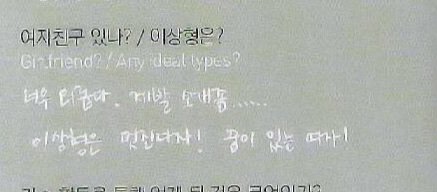 여자친구 있나? / 이상형은?
Girlfriend? / Any ideal types?
너무 외롭다. 제발 소개좀.....
이상형은 멋진여자! 꿈이 있는 여자!